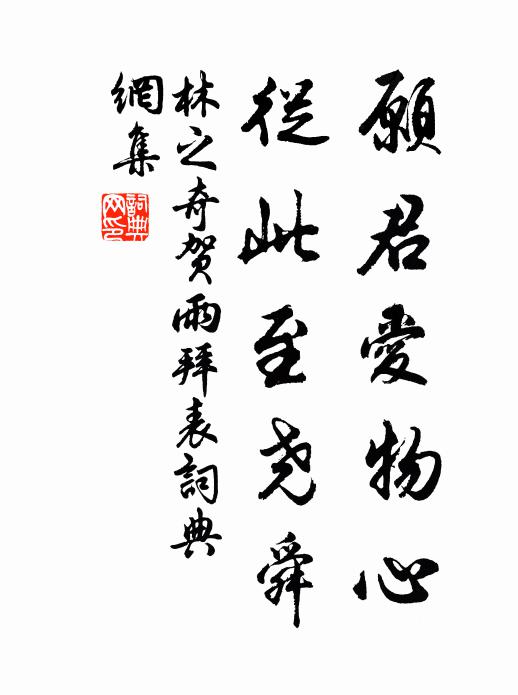 願君愛物心
從此至尧舜
林之奇賀雨拜表詞典
網集
詞典
网印